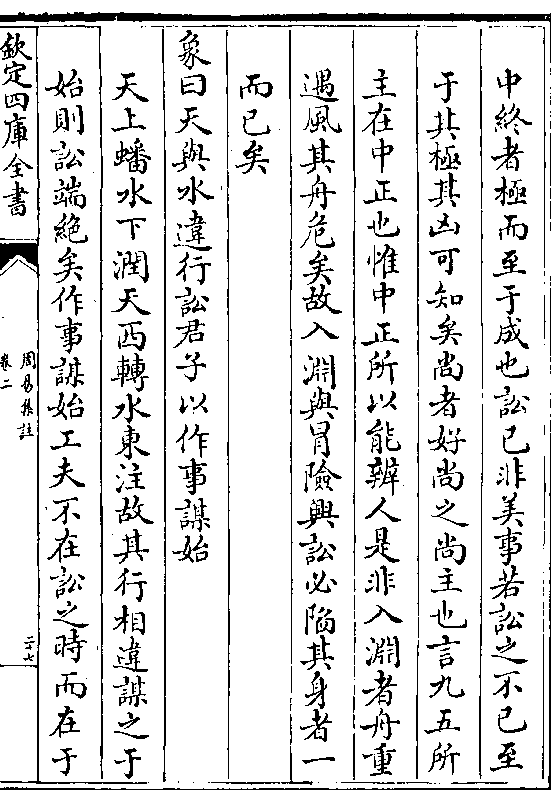 中終者極而至于成也訟已非美事若訟之不已至
于其極其凶可知矣尚者好尚之尚主也言九五所
主在中正也惟中正所以能辨人是非入淵者舟重
遇風其舟危矣故入淵與冒險興訟必陷其身者一
而已矣
象曰天與水違行訟君子以作事謀始
天上蟠水下潤天西轉水東注故其行相違謀之于
始則訟端絕矣作事謀始工夫不在訟之時而在于
欽定四庫全書
周易集註
卷二
二十七